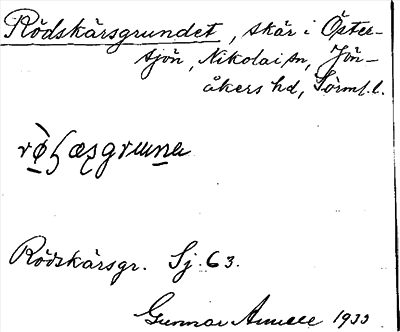 Rödskärsgrundet, skär i Öster-
sjön, Nikolai sn, Jön-
åkers hd, Sörml. l.
Rödskärsgr. Sj. 63.
Gunnar 1933